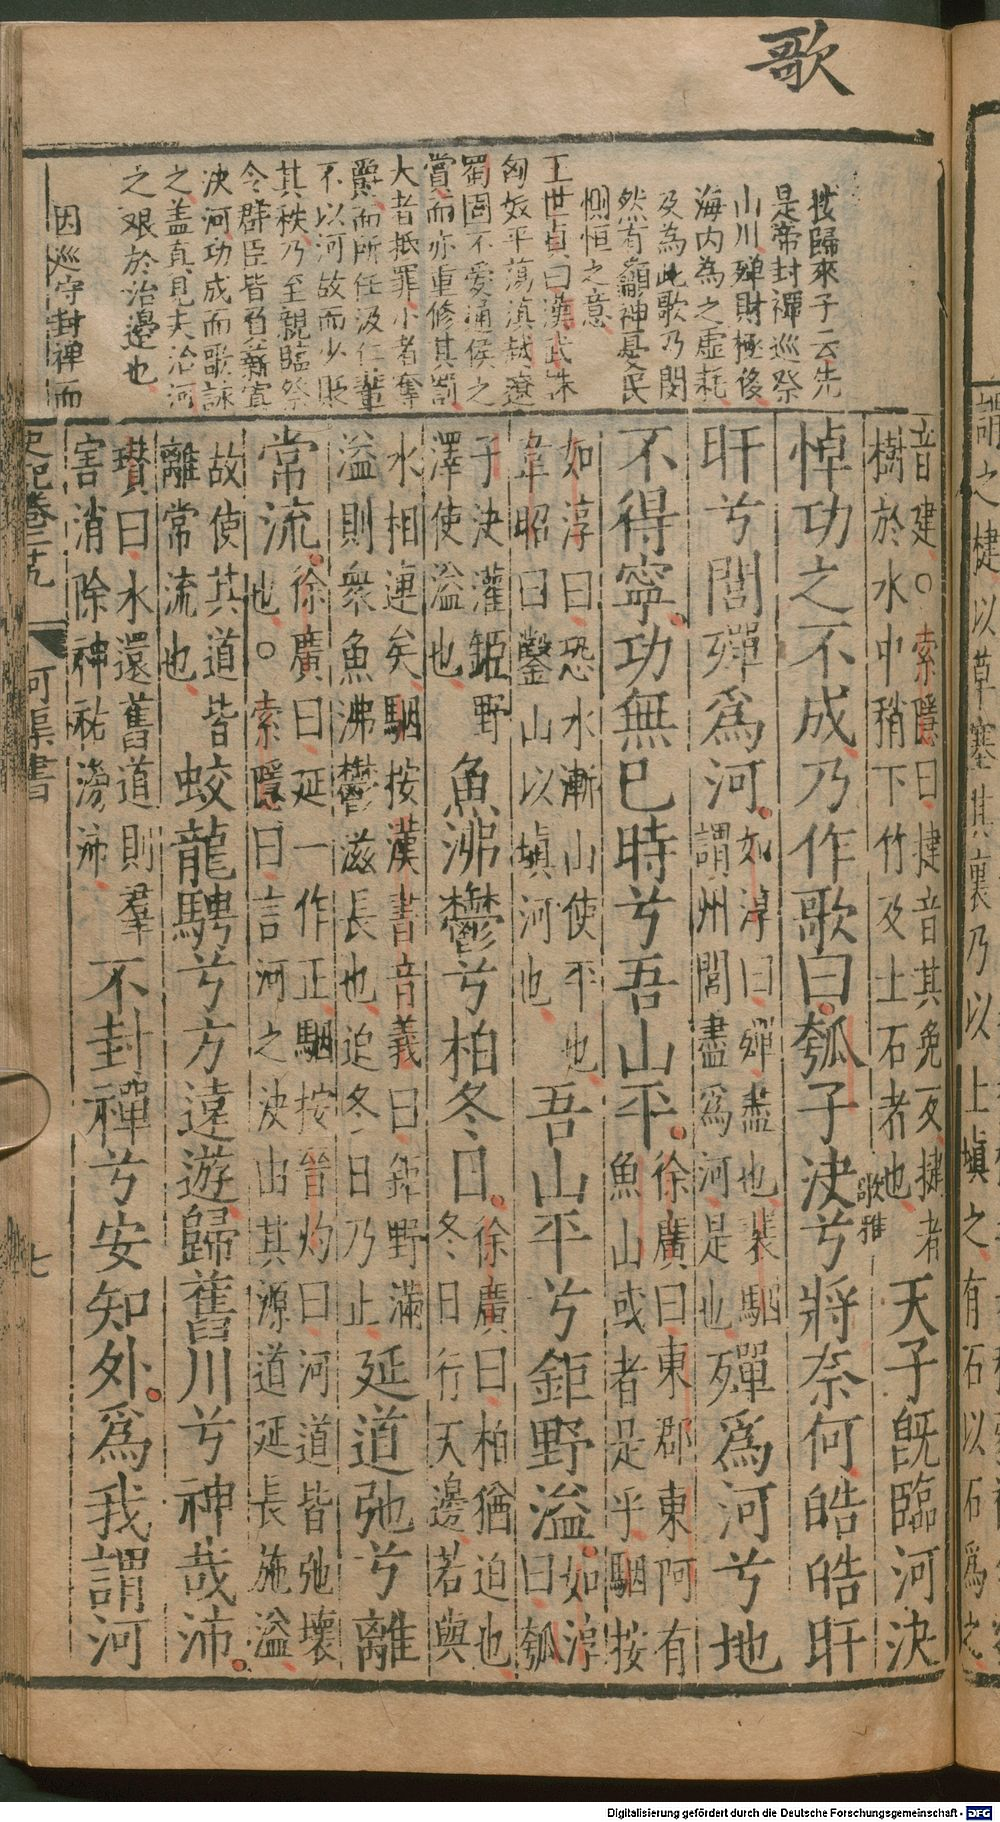 歌
按歸來子云先
是帝封禪巡祭
山川殫財極後
海内為之虛耗
及為此歌乃閔
然有籲神憂民
惻恒之意
王世貞曰漢武誅
匈奴平蕩滇越遼
蜀固不愛通侯之
賞而亦重修其罰
大者抵罪小者奪
爵而所任汲仁輩
不以河故而少貶
其秩乃至親臨祭
令群臣皆負薪寘
決河功成而歌詠
之盖真見夫治河
之艱於治邊也
因巡守封禅而
音建○索隱曰揵音其免反揵者
樹於水中稍下竹及土石者也
天子旣臨河決
悼功之不成乃作歌曰瓠子決兮將奈何皓皓旰
歌雅
旰兮閭殫爲河
如淳曰殫盡也裴駰
謂州閭盡爲河是也
殫爲河兮地
不得寧功無已時兮吾山平
徐廣曰東郡東阿有
魚山或者是乎駰按
如淳曰恐水漸山使平也
韋昭曰鑿山以塡河也
吾山平兮鉅野溢
如淳
曰瓠
子決灌鉅野
澤使溢也
魚沸鬱兮柏冬日
徐廣曰柏猶迫也
冬日行天邊若與
水相連矣駰按漢書音義曰鉅野滿
溢則衆魚沸鬱滋長也迫冬日乃止
延道弛兮離
常流
徐廣曰延一作正駰按晉灼曰河道皆弛壞
也○索隱曰言河之決由其源道延長施溢
故使其道皆
離常流也
蛟龍騁兮方遠遊歸舊川兮神哉沛
瓚曰水還舊道則羣
害消除神祐滂沛
不封禪兮安知外爲我謂河
史記卷二十九
河渠書
七
謂之楗以草塞其裏乃以
土塡之有石以石爲之
Digitalisierung gefördert durch die Deutsche Forschungsgemeinschaft - DFG